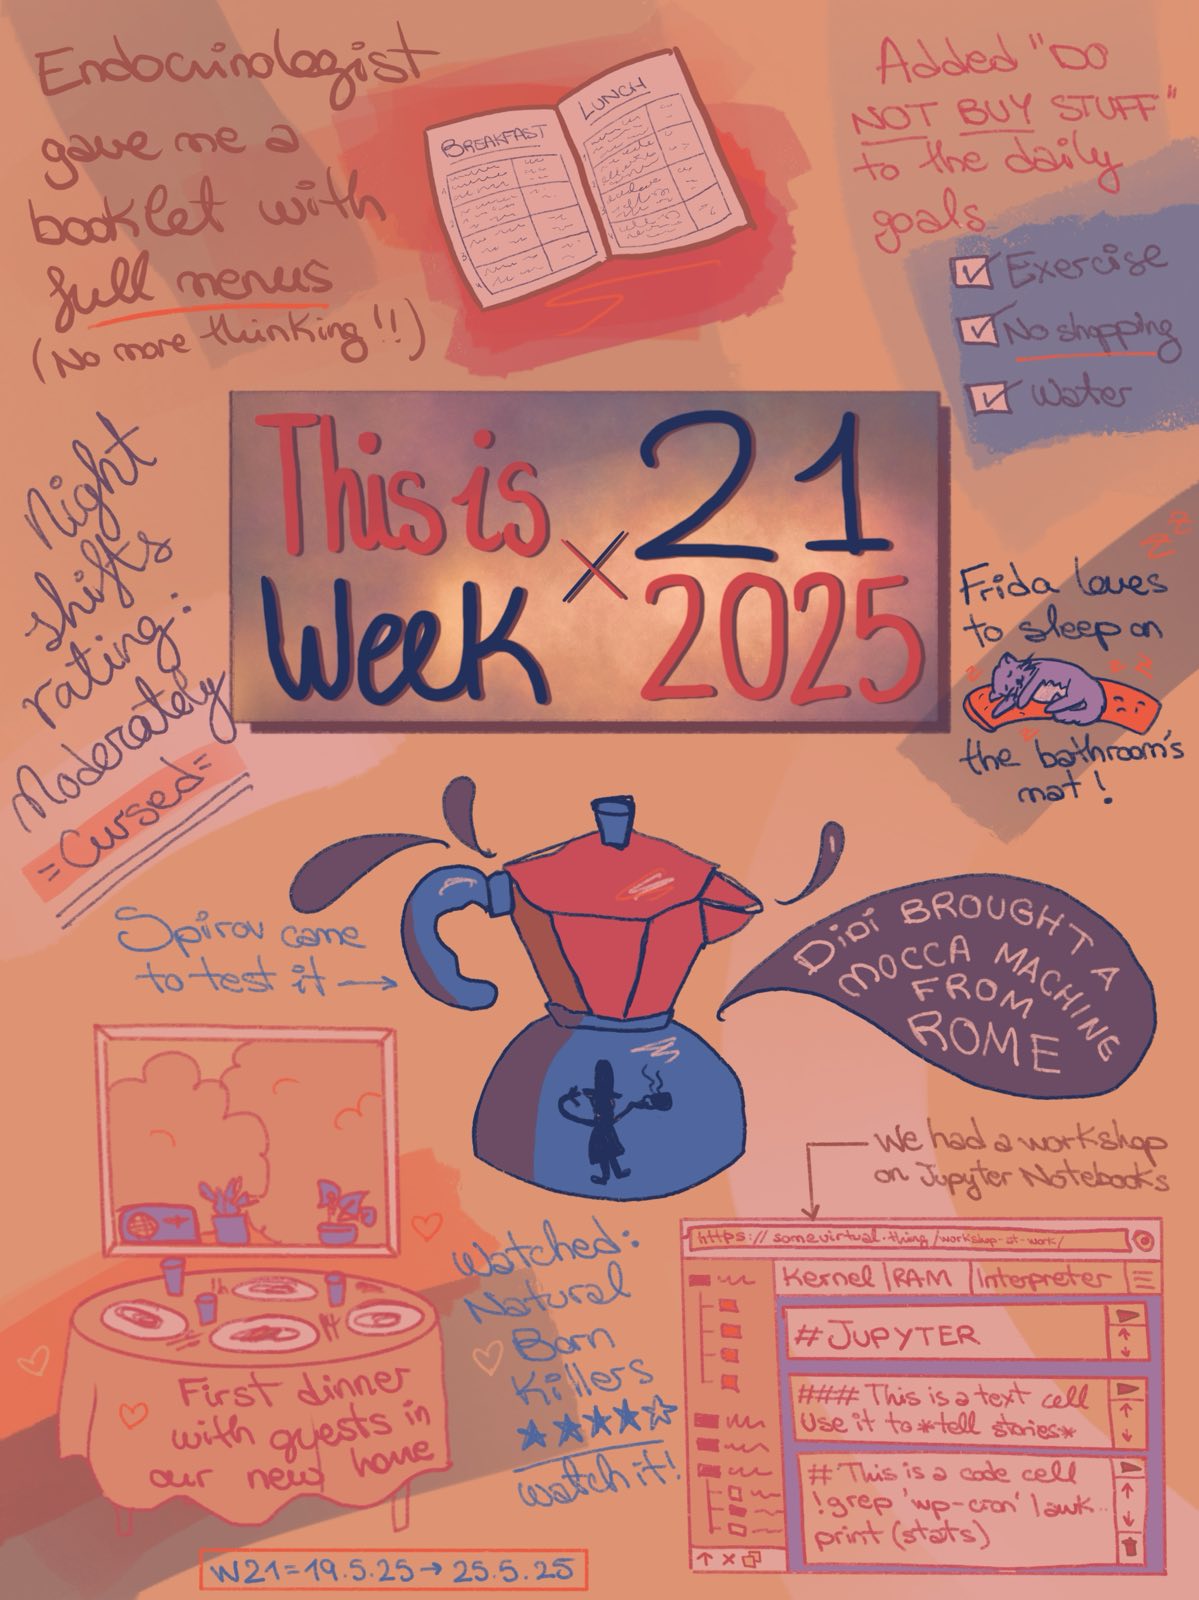 Endocrinologist
gave me a
booklet with
full menus
(No more thinking!!)
BREAKFAST
LUNCH
Added "DO
NOT BUY STUFF"
to the daily
goals
Exercise
No shopping
Water
This is
Week
21
2025
Night
shifts
rating:
Moderately
=Cursed=
Frida loves
to sleep on
the bathroom's
mat!
Spirov came
to test it
DIDI BROUGHT A
MOCCA MACHINE
FROM
ROME
First dinner
with guests in
our new home
Watched:
Natural
Born
Killers
watch it!
We had a workshop
on Jupyter Notebooks
https://somevirtual.thing/workshop-at-work/
Kernel | RAM | Interpreter
# JUPYTER
### This is a text cell
Use it to *tell stories*
# This is a code cell
!grep 'wp-cron' | awk..
print (stats)
W21=19.5.25→25.5.25